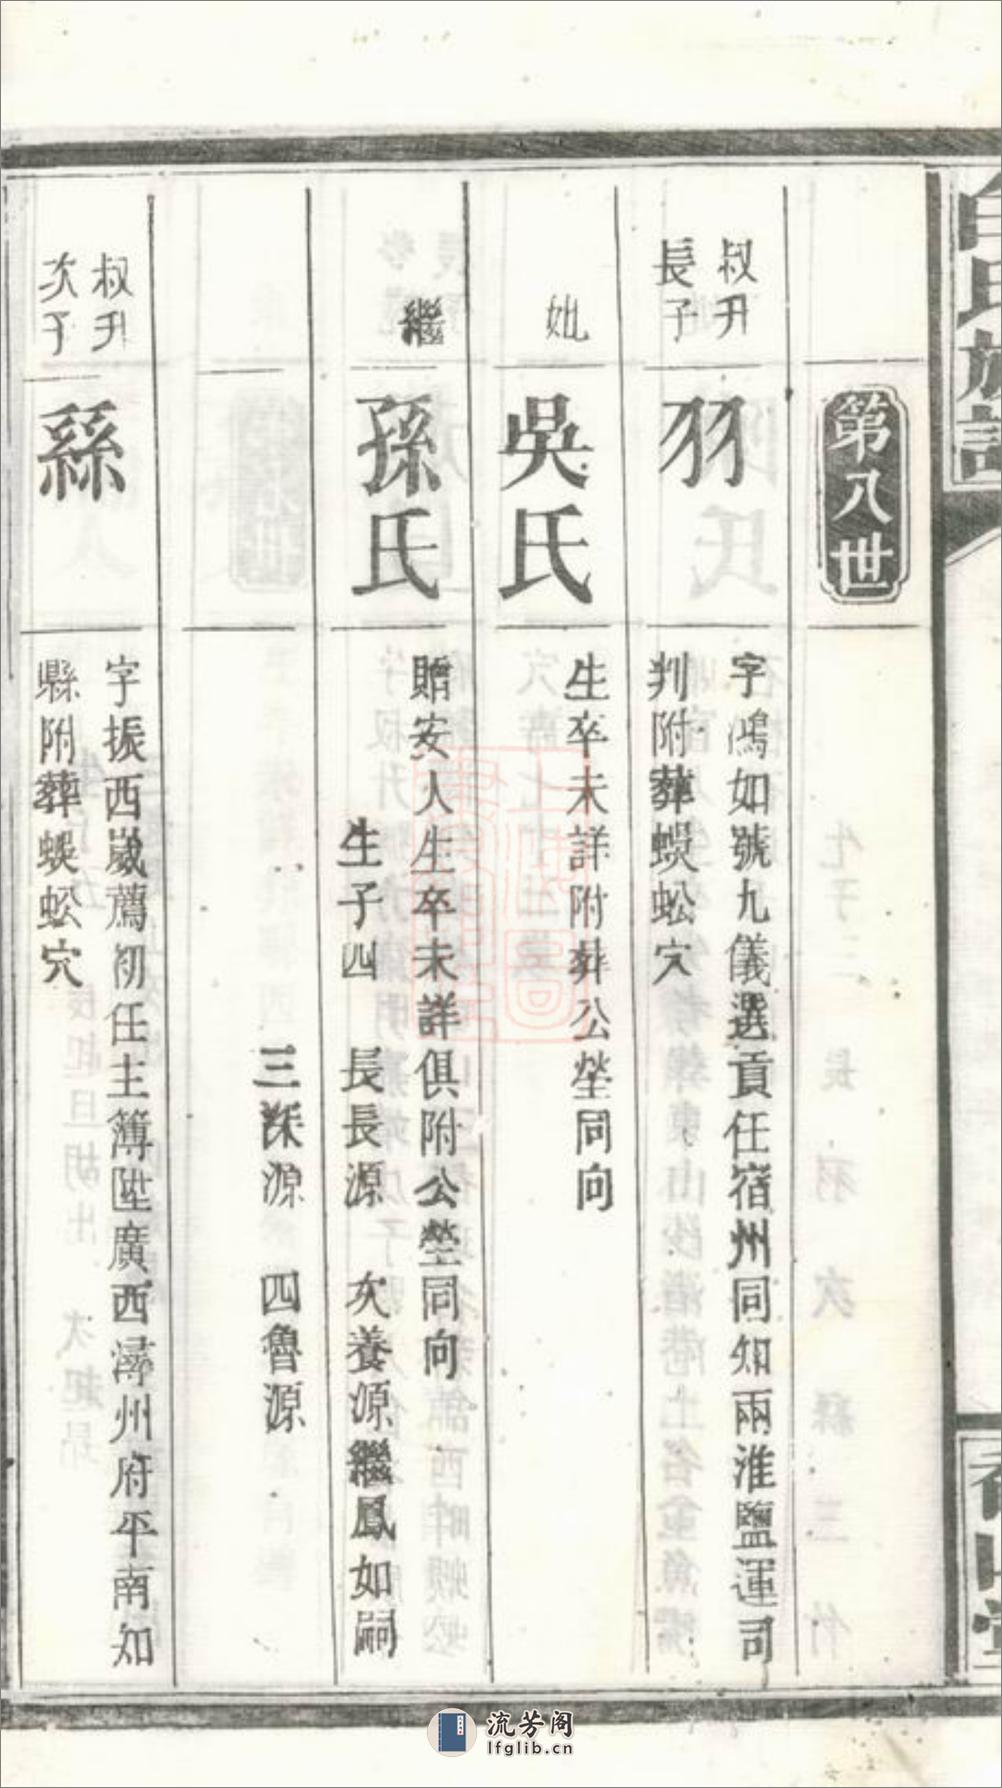 第八世
叔升
長子
羽
字鴻如號九儀選貢任宿州同知兩淮鹽運司
判附葬蜈蚣穴
妣
吳氏
生卒未詳附葬公塋同向
繼
孫氏
贈安人生卒未詳俱附公塋同向
生子四 長長源 次養源繼鳳如嗣
三深源 四魯源
叔升
次子
繇
字振西歲薦初任主簿陞廣西潯州府平南知
縣附葬蜈蚣穴
流芳阁
lfglib.cn